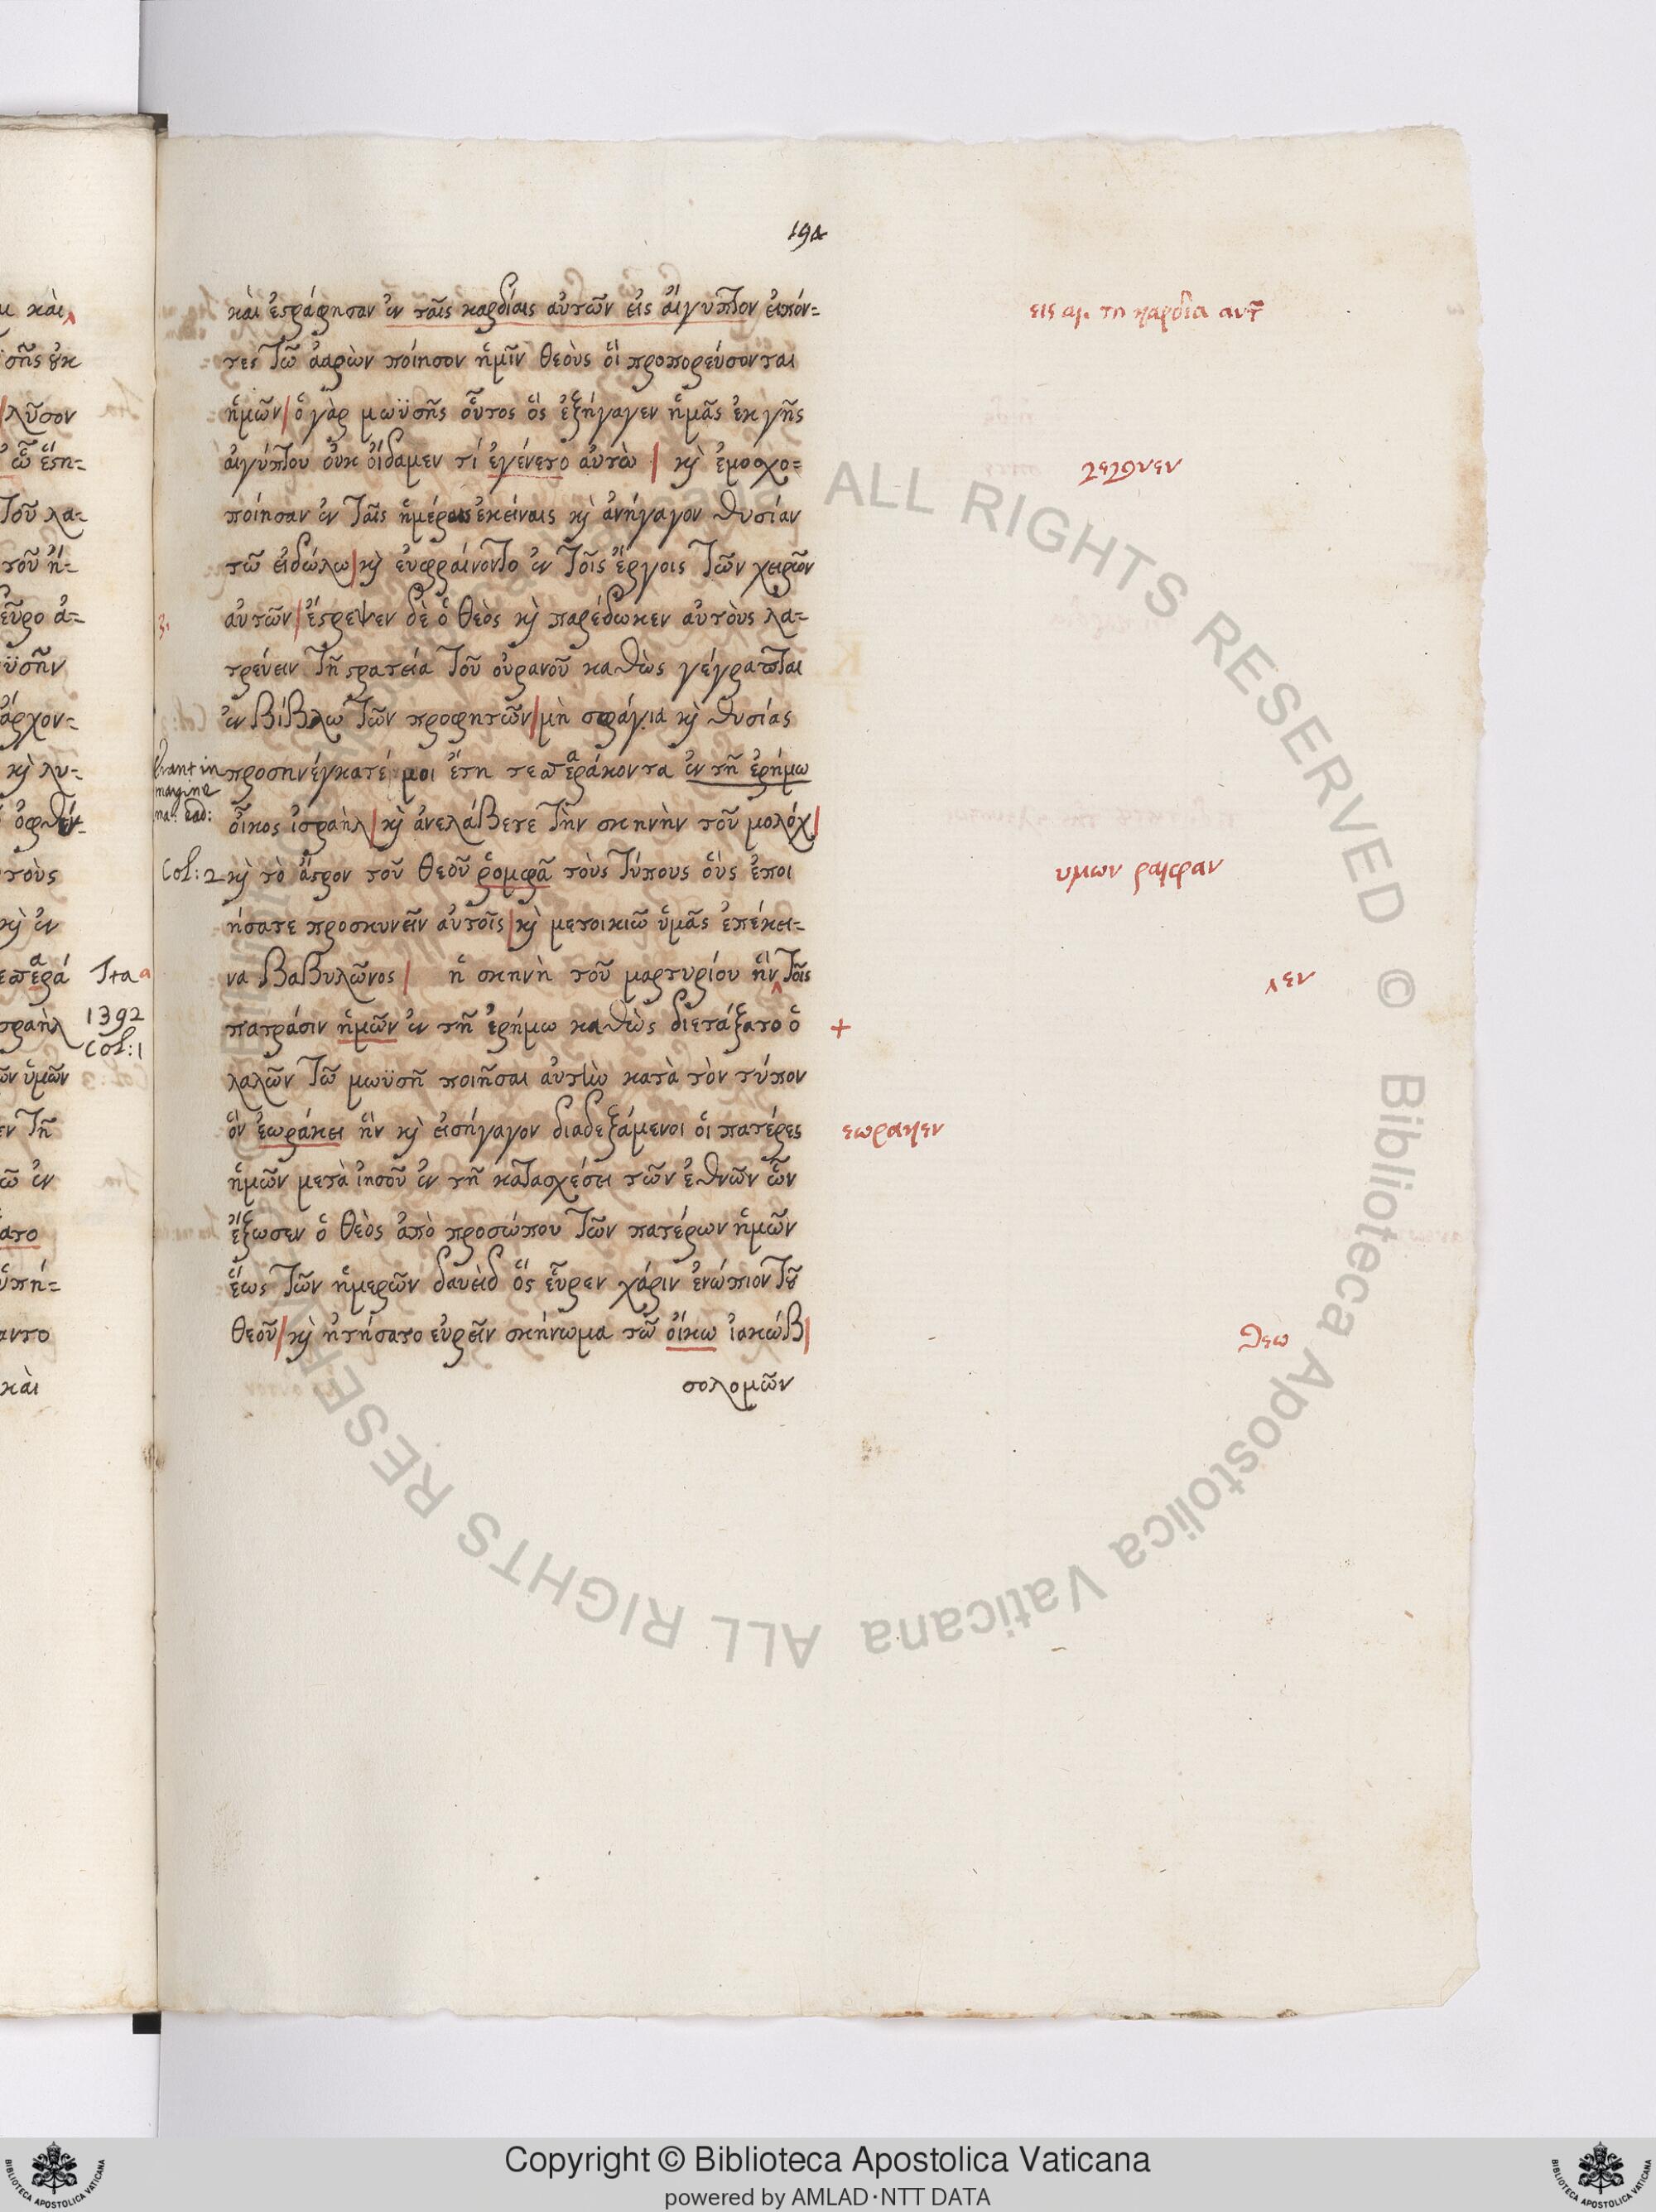 194
καὶ ἐστράφησαν ἐν ταῖς καρδίαις αὐτῶν εἰς ἄιγυπτον ἐιπόν=
τες τῶ ἀαρὼν ποίησον ἡμῖν θεοὺς ὃι προπορεύσονται
ἡμῶν/ ὁ γὰρ μωϋσῆς οὗτος ὃς ἐξήγαγεν ἡμᾶς ἐκ γῆς
ἀιγύπτου οὐκ ὄιδαμεν τί ἐγένετο αὐτῶ/ κὶ ἐμοσχο=
ποίησαν ἐν ταῖς ἡμέραις ἐκείναις κὶ ἀνήγαγον θυσίαν
τῶ εἰδώλω/ κὶ ἐυφραίνοντο ἐν τοῖς ἔργοις τῶν χειρῶν
αὐτῶν/ ἔστρεψεν δὲ ὁ θεὸς κὶ παρέδωκεν αὐτοὺς λα=
τρέυειν τῆ στρατεία τοῦ οὐρανοῦ καθὼς γέγραπται
ἐν βίβλω τῶν προφητῶν/ μὴ σφάγια κὶ θυσίας
προσηνέγκατέ μοι ἔτη τεσσεράκοντα ἐν τῆ ἐρήμω
οἶκος ἰσραὴλ/ κὶ ἀνελάβετε τὴν σκηνὴν τοῦ μολόχ/
Col: 2 κὶ τὸ ἄστρον τοῦ θεοῦ ῥομφᾶ τοὺς τύπους οὓς ἐποι
ήσατε προσκυνεῖν αὐτοῖς/ κὶ μετοικιῶ ὑμᾶς ἐπέκει=
να βαβυλῶνος/ ἡ σκηνὴ τοῦ μαρτυρίου ἦν τοῖς
πατράσιν ἡμῶν ἐν τῆ ἐρήμω καθὼς διετάξατο ὁ +
λαλῶν τῶ μωϋσῆ ποιῆσαι αὐτὴν κατὰ τὸν τύπον
ὃν ἑωράκει ἣν κὶ εἰσήγαγον διαδεξάμενοι ὁι πατέρες
ἡμῶν μετὰ ἰησοῦ ἐν τῆ κατασχέσει τῶν ἐθνῶν ὧν
ἔξωσεν ὁ θεὸς ἀπὸ προσώπου τῶν πατέρων ἡμῶν
ἕως τῶν ἡμερῶν δαυεὶδ ὃς εὗρεν χάριν ἐνώπιον τοῦ
θεοῦ/ κὶ ἠτήσατο εὑρεῖν σκήνωμα τῶ οἴκω ἰακώβ/
σολομῶν
εις αι. τη καρδια αυτ
γεγονεν
υμων ραιφαν
εν
εωρακεν
θεω
erant in
margine
καὶ
σῆς οὐκ
λῦσον
τοῦ λα=
εῦρο ἀ=
ϋσῆν
ἄρχον=
κὶ λυ=
τοὺς
κὶ ἐν
Ita
1392
Col: 1
ῶν ὑμῶν
εν τῆ
ατο
αντο
καὶ